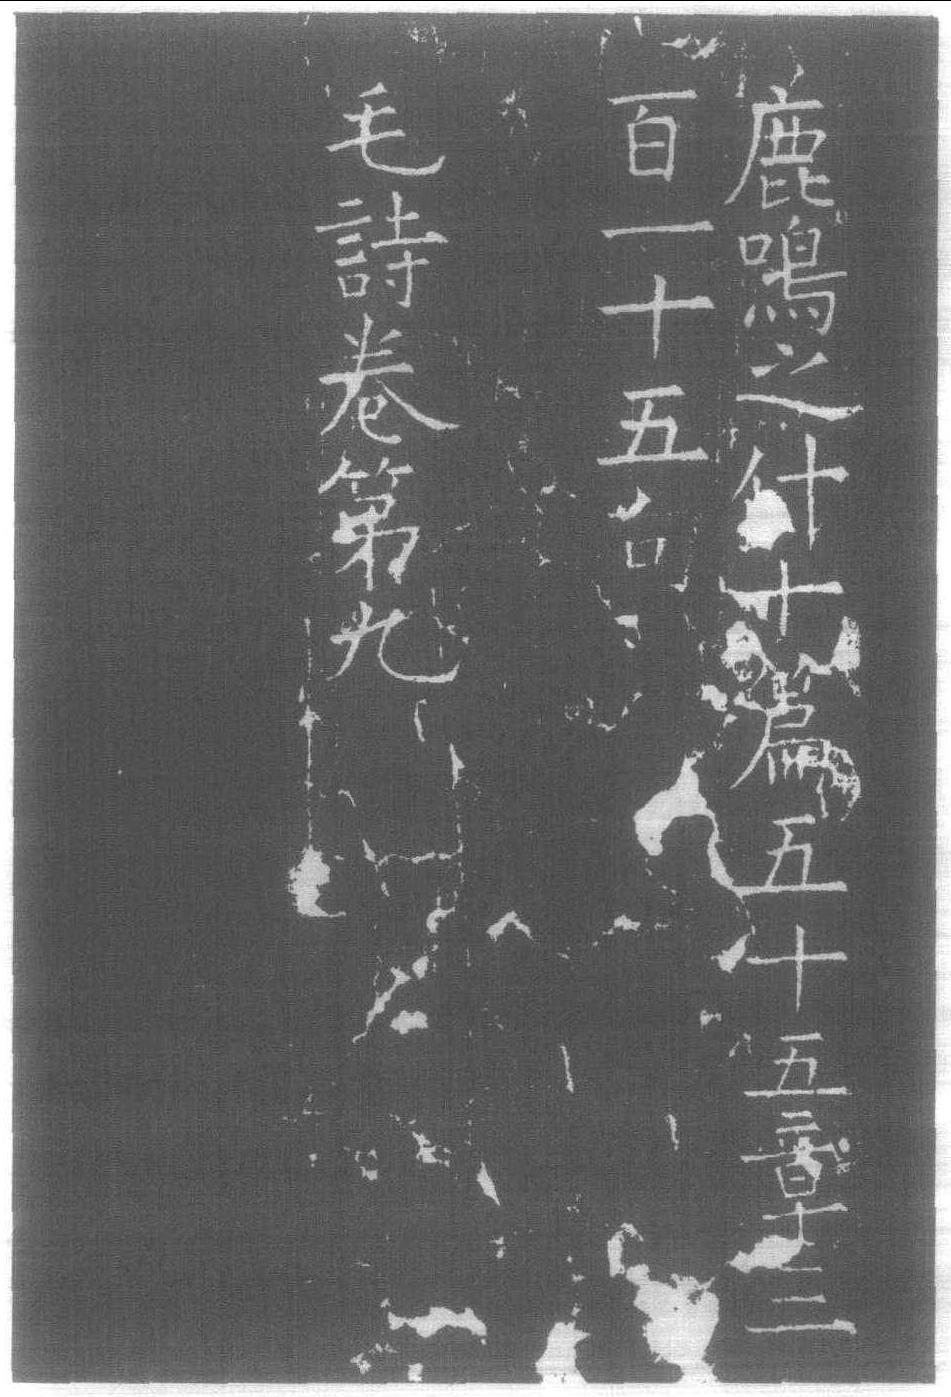 鹿鳴之什十篇五十五章三
百一十五句
毛詩卷第九